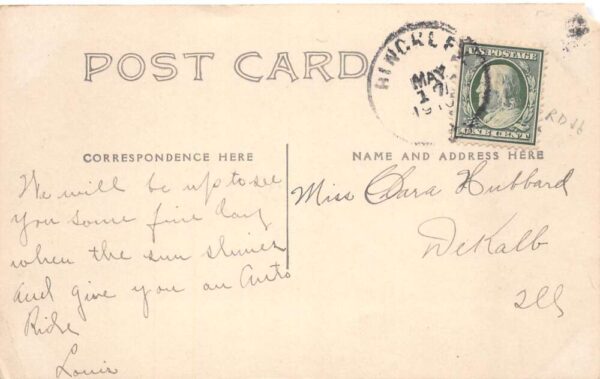 POST CARD
HINCKLEY
MAY
17
1910
U.S. POSTAGE
ONE CENT
RD56
CORRESPONDENCE HERE
NAME AND ADDRESS HERE
We will be up to see
you some fine day
when the sun shines
and give you an Auto
Ride
Louis
Miss Clara Hubbard
DeKalb
Ill